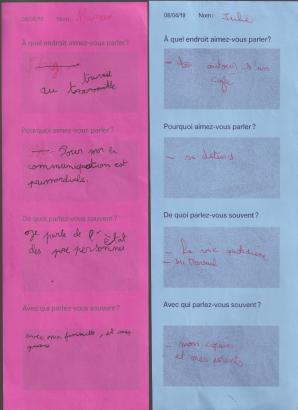 08/04/19 Nom:
À quel endroit aimez-vous parler?
au travail
Pourquoi aimez-vous parler?
- Pour moi la
communiquation est
primordiale.
De quoi parlez-vous souvent?
Je parle de l'état
des personnes
Avec qui parlez-vous souvent?
avec ma famille, et mes
08/04/19 Nom: Julie
À quel endroit aimez-vous parler?
- autour d'un
café
Pourquoi aimez-vous parler?
-
De quoi parlez-vous souvent?
- La vie quotidienne
- du travail
Avec qui parlez-vous souvent?
- mon copain
- et mes parents